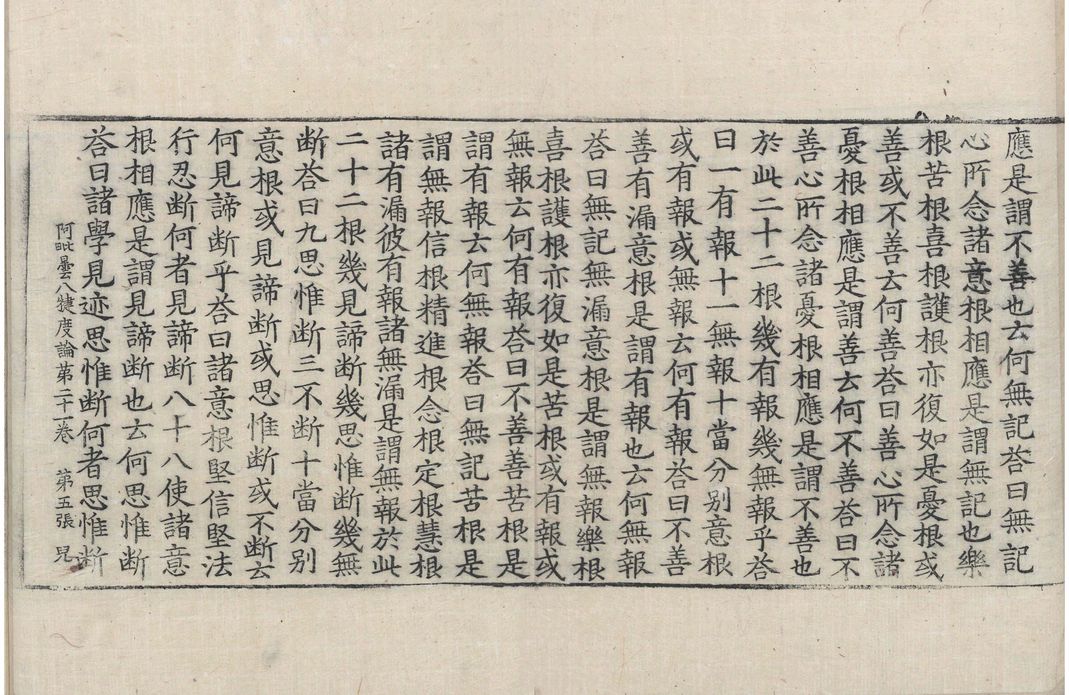 應是謂不善也云何無記荅曰無記
心所念諸意根相應是謂無記也樂
根苦根喜根護根亦復如是憂根或
善或不善云何善荅曰善心所念諸
憂根相應是謂善云何不善荅曰不
善心所念諸憂根相應是謂不善也
於此二十二根幾有報幾無報乎荅
曰一有報十一無報十當分別意根
或有報或無報云何有報荅曰不善
善有漏意根是謂有報也云何無報
荅曰無記無漏意根是謂無報樂根
喜根護根亦復如是苦根或有報或
無報云何有報荅曰不善善苦根是
謂有報云何無報荅曰無記苦根是
謂無報信根精進根念根定根慧根
諸有漏彼有報諸無漏是謂無報於此
二十二根幾見諦斷幾思惟斷幾無
断荅曰九思惟斷三不斷十當分別
意根或見諦斷或思惟斷或不斷云
何見諦斷乎荅曰諸意根堅信堅法
行忍断何者見諦斷八十八使諸意
根相應是謂見諦斷也云何思惟斷
荅曰諸學見迹思惟斷何者思惟斷
阿毗曇八犍度論第二十一卷 第五張